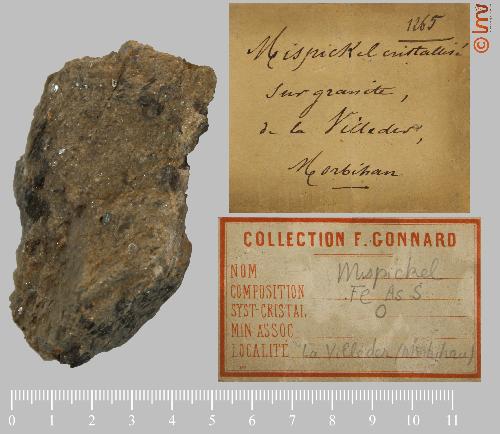 1265
Mispickel cristallisé
sur granite,
de la Villeder,
Morbihan
© lmv
COLLECTION F. GONNARD
NOM Mispickel
COMPOSITION Fe As S
SYST-CRISTAL. O
MIN. ASSOC.
LOCALITÉ La Villeder (Morbihan)
0 1 2 3 4 5 6 7 8 9 10 11